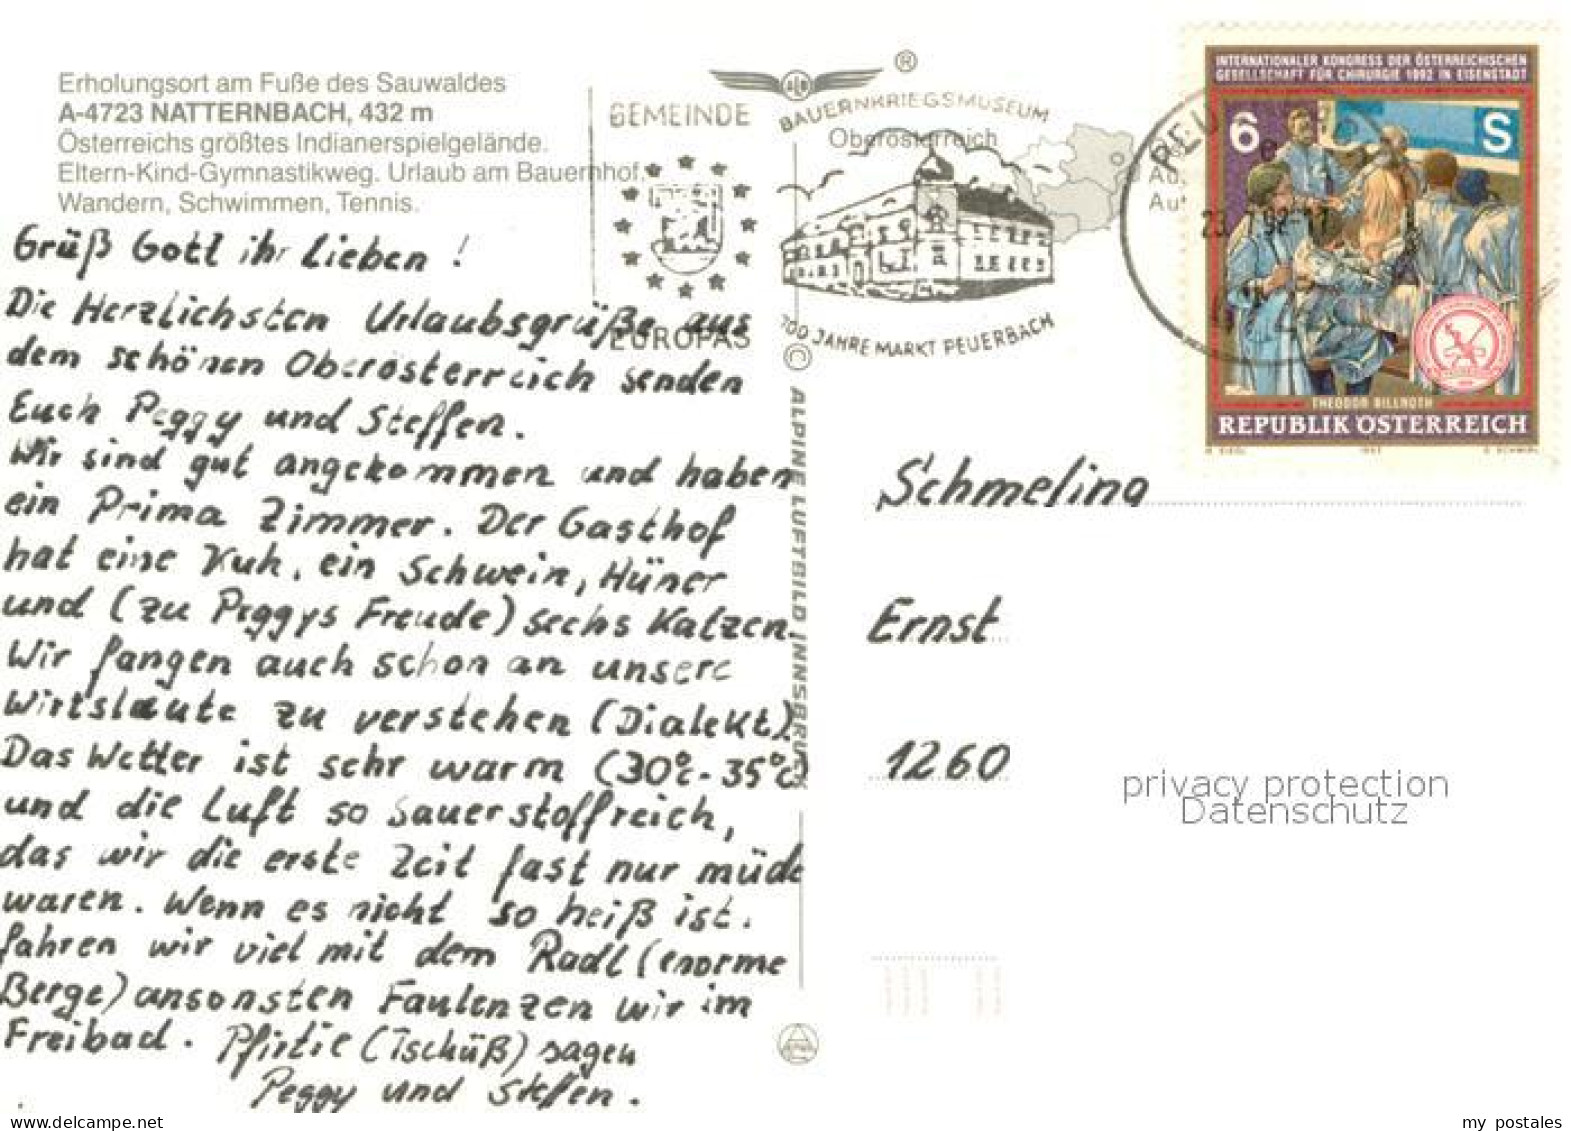 Erholungsort am Fuße des Sauwaldes
A-4723 NATTERNBACH, 432 m
Österreichs größtes Indianerspielgelände.
Eltern-Kind-Gymnastikweg. Urlaub am Bauernhof.
Wandern, Schwimmen, Tennis.
Grüß Gott ihr Lieben !
Die Herzlichsten Urlaubsgrüße aus
dem schönen Oberösterreich senden
Euch Peggy und Steffen.
Wir sind gut angekommen und haben
ein Prima Zimmer. Der Gasthof
hat eine Kuh, ein Schwein, Hüner
und (zu Peggys Freude) sechs Katzen.
Wir fangen auch schon an unsere
Wirtsleute zu verstehen (Dialekt).
Das Wetter ist sehr warm (30°c - 35°c)
und die Luft so Sauerstoffreich,
das wir die erste Zeit fast nur müde
waren. Wenn es nicht so heiß ist.
fahren wir viel mit dem Radl (enorme
Berge) ansonsten Faulenzen wir im
Freibad. Pfirtie (Tschüß) sagen
Peggy und Steffen.
GEMEINDE
EUROPAS
ALR
®
BAUERNKRIEGSMUSEUM
Oberösterreich
700 JAHRE MARKT PEUERBACH
© ALPINE LUFTBILD INNSBRUCK
PEU
Au
INTERNATIONALER KONGRESS DER ÖSTERREICHISCHEN
GESELLSCHAFT FÜR CHIRURGIE 1992 IN EISENSTADT
6 S
THEODOR BILLROTH
REPUBLIK ÖSTERREICH
Schmeling
Ernst
1260
privacy protection
Datenschutz
www.delcampe.net
my_postales